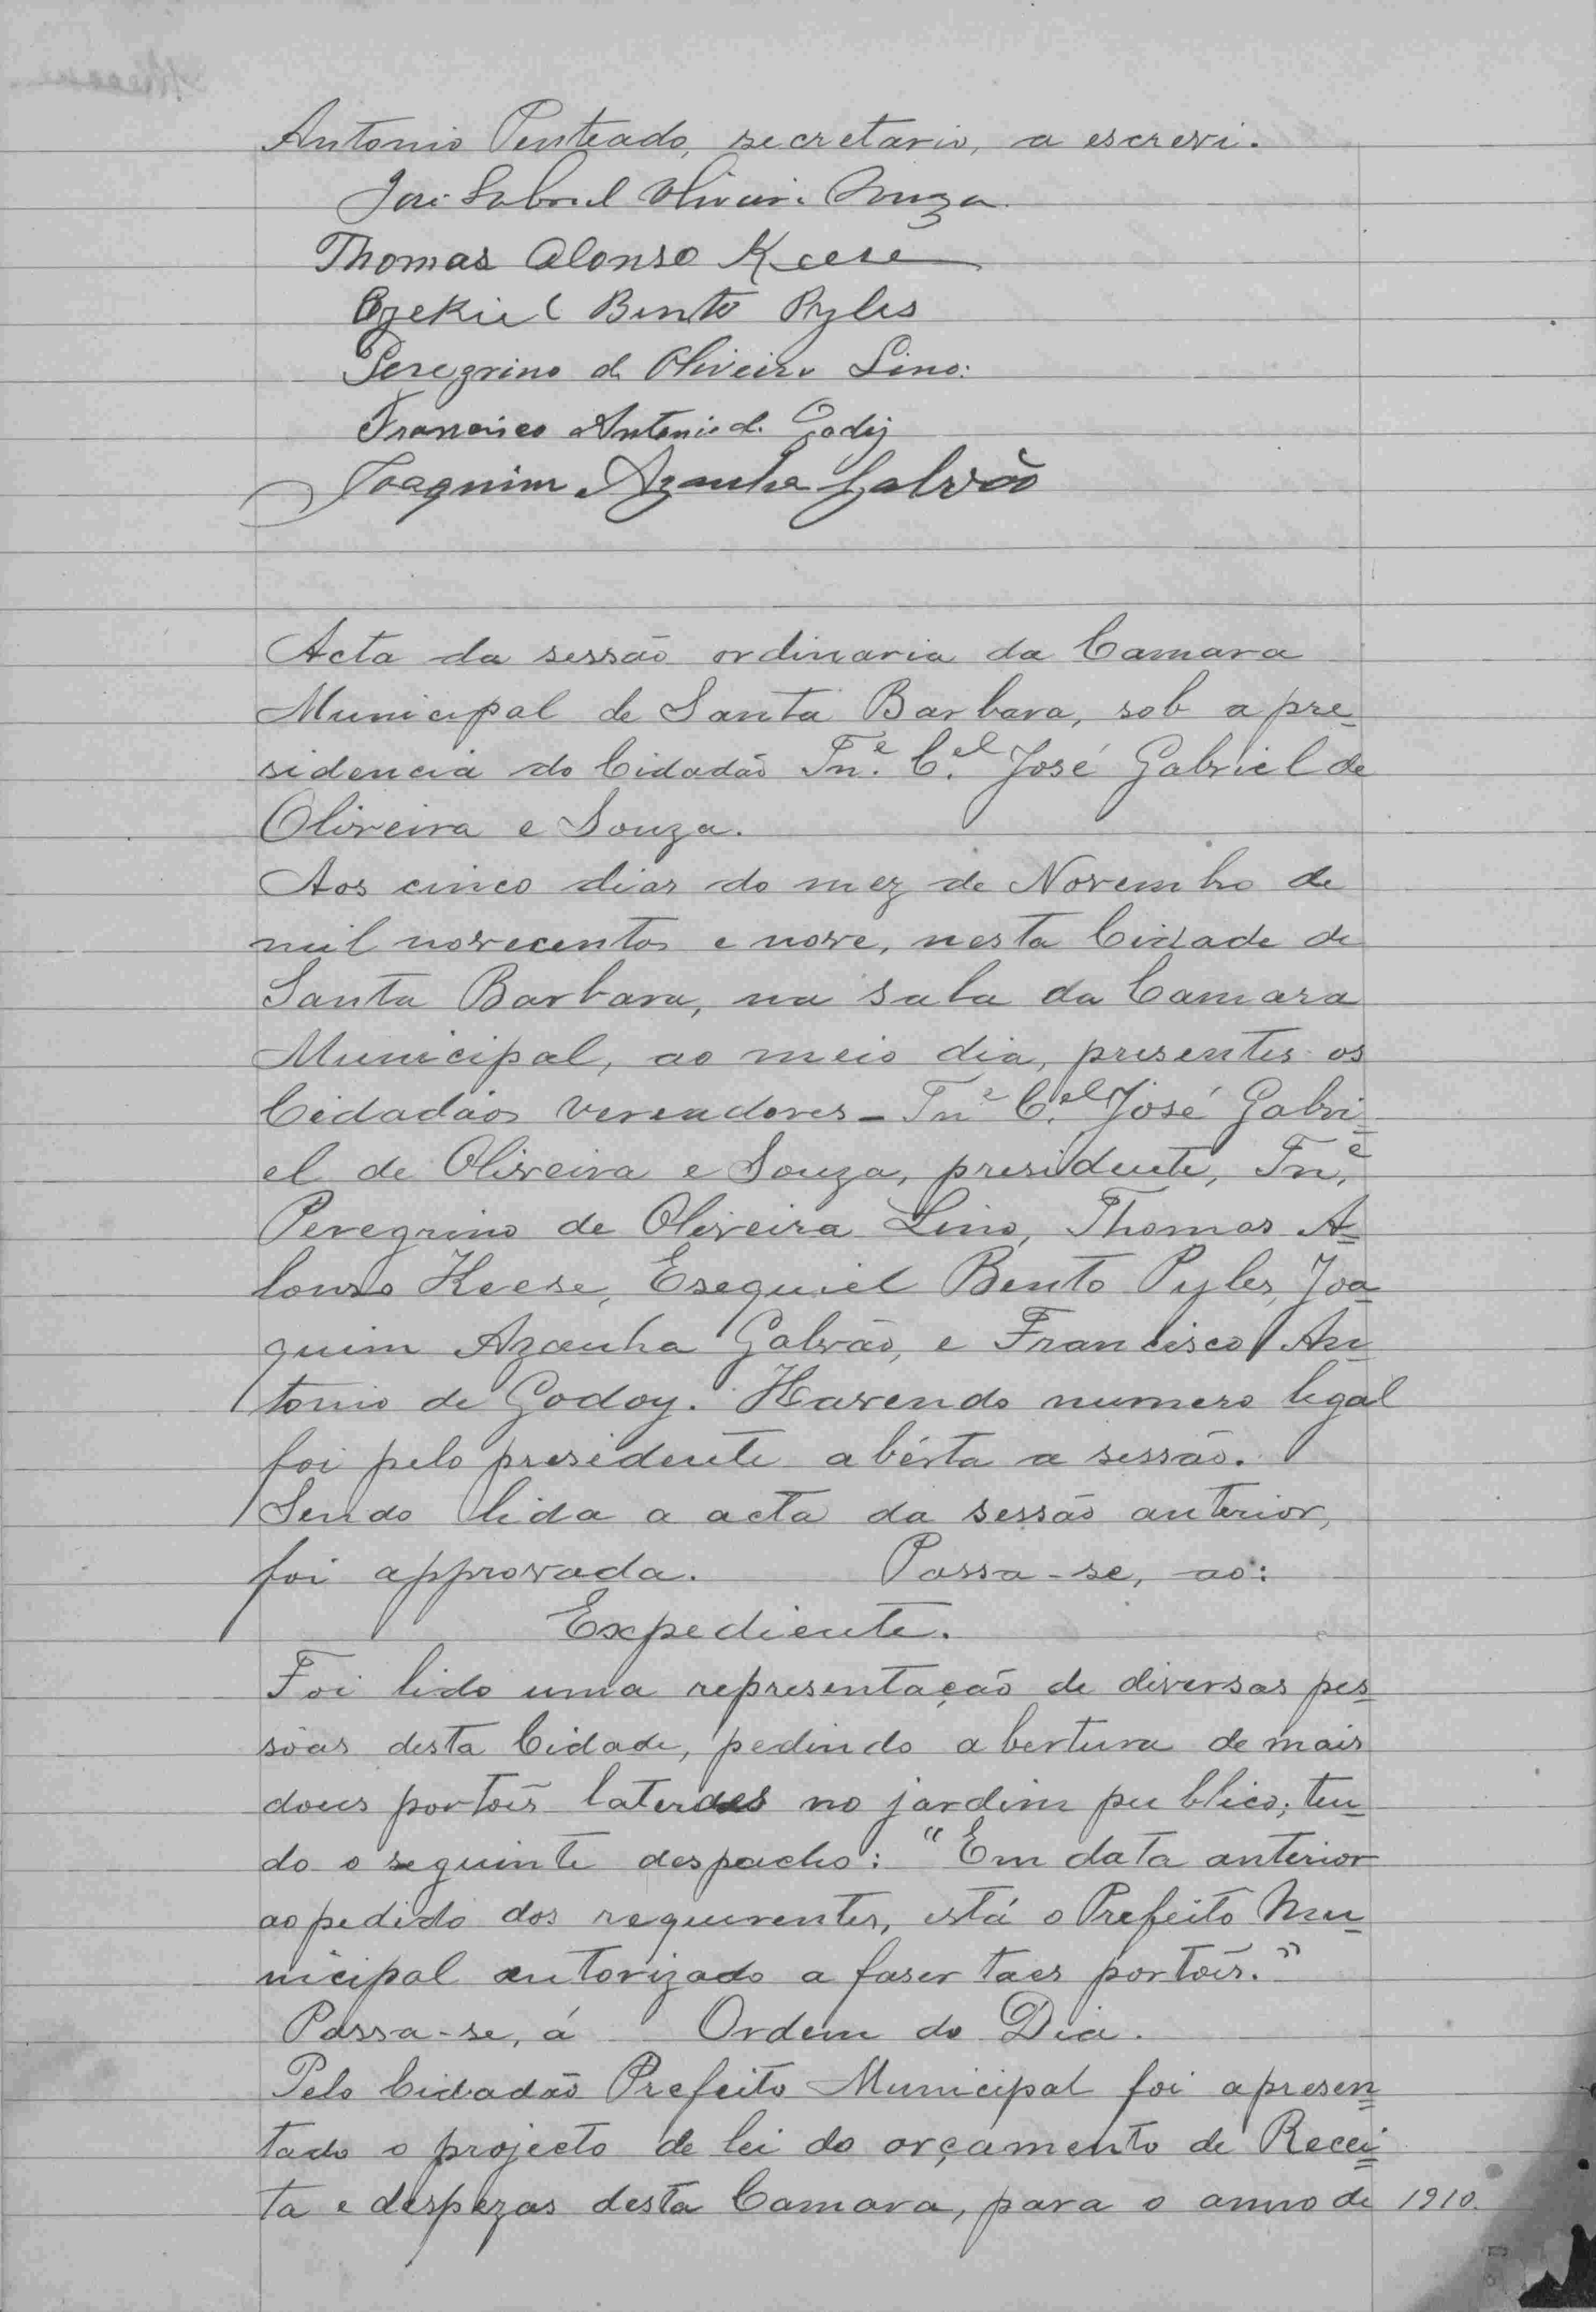 Antonio Penteado, secretario, a escrevi.
José Gabriel Oliveira Souza
Thomas Alonso Keese
Ezekiel Bento Pyles
Peregrino de Oliveira Lino.
Francisco Antonio de Godoy
Joaquim Azanha Galvão
Acta da sessão ordinaria da Camara
Municipal de Santa Barbara, sob a pre=
sidencia do Cidadão Tn.e C.el José Gabriel de
Oliveira e Souza.
Aos cinco dias do mez de Novembro de
mil novecentos e nove, nesta Cidade de
Santa Barbara, na sala da Camara
Municipal, ao meio dia, presentes os
Cidadãos vereadores - Tn.e C.el José Gabri=
el de Oliveira e Souza, presidente, Tn.e
Peregrino de Oliveira Lino, Thomas A=
lonso Keese, Esequiel Bento Pyles, Joa=
quim Azanha Galvão, e Francisco An=
tonio de Godoy. Havendo numero legal
foi pelo presidente abérta a sessão.
Sendo lida a acta da sessão anterior,
foi approvada. Passa-se, ao:
Expediente.
Foi lido uma representação de diversas pes=
sôas desta Cidade, pedindo abertura de mais
dous portões lateraes no jardim publico; ten=
do o seguinte despacho: "Em data anterior
ao pedido dos requerentes, está o Prefeito Mu=
nicipal autorizado a faser taes portões."
Passa-se, á Ordem do Dia.
Pelo Cidadão Prefeito Municipal foi apresen=
tado o projecto de lei do orçamento de Recei=
ta e despezas desta Camara, para o anno de 1910.